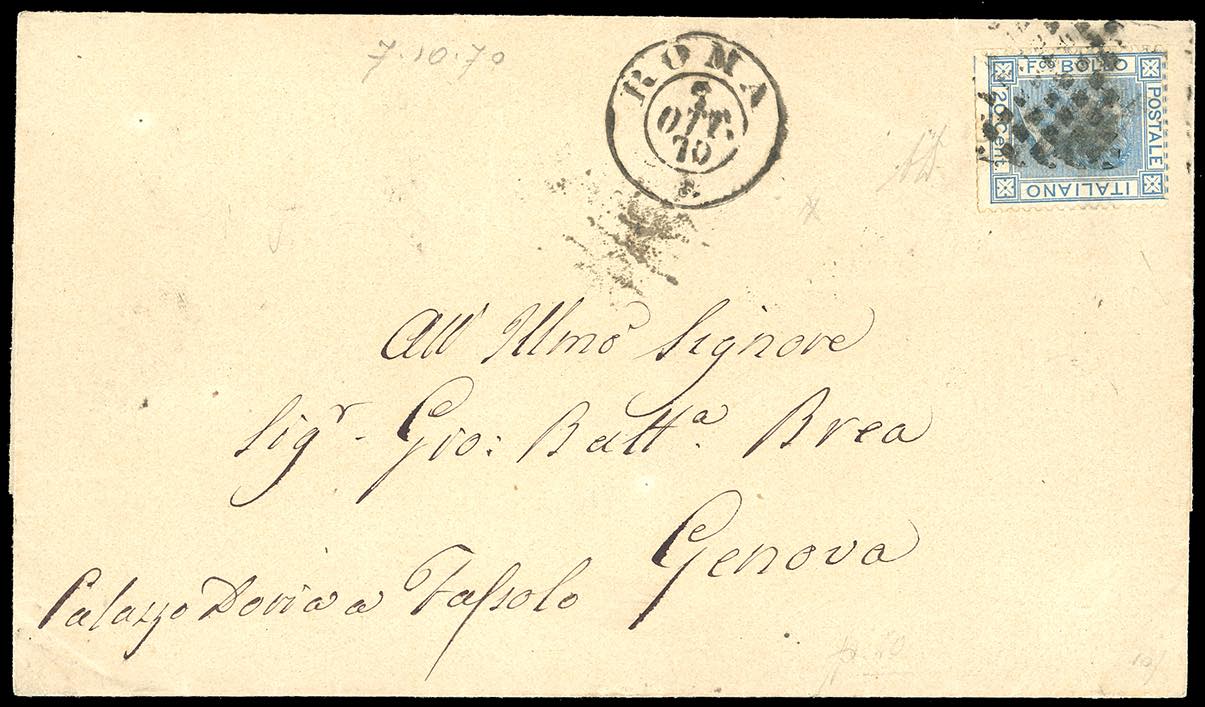 7.10.70
ROMA
7
OTT.
70
F.co BOLLO
POSTALE
ITALIANO
20 Cent.
All' Illmo Signore
Sigr. Gio: Batta. Brea
Genova
Palazzo Doria a Fassolo